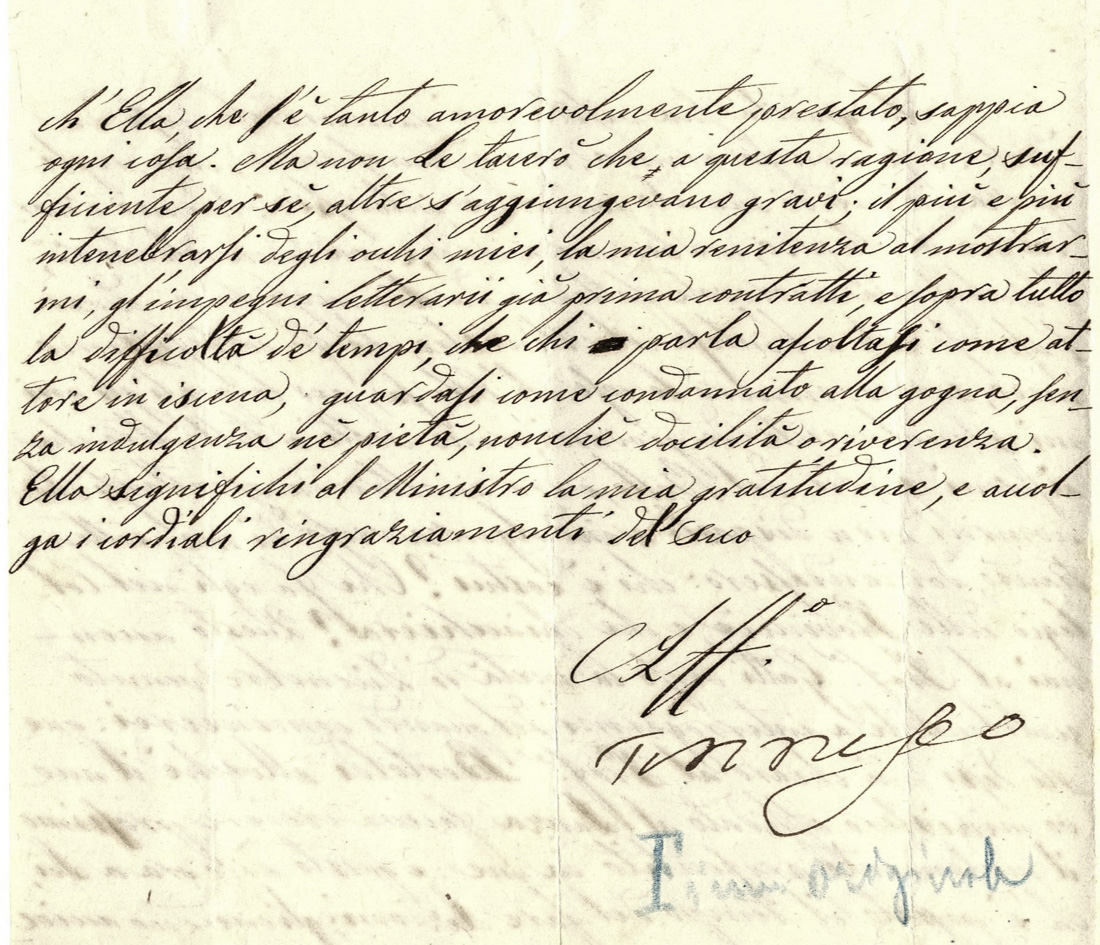 ch'Ella, che s'è tanto amorevolmente prestato, sappia
ogni cosa. Ma non Le tacerò che, a questa ragione, suf-
ficiente per sè, altre s'aggiungevano gravi; il più e più
intenebrarsi degli occhi miei, la mia renitenza al mostrar-
mi, gl'impegni letterarii già prima contratti, e sopra tutto
la difficoltà de' tempi, che chi parla ascoltasi come at-
tore in iscena, guardasi come condannato alla gogna, sen-
za indulgenza nè pietà, nonchè docilità o riverenza.
Ella significhi al Ministro la mia gratitudine, e accol-
ga i cordiali ringraziamenti del suo
Aff.o
Tommaseo
Firma originale